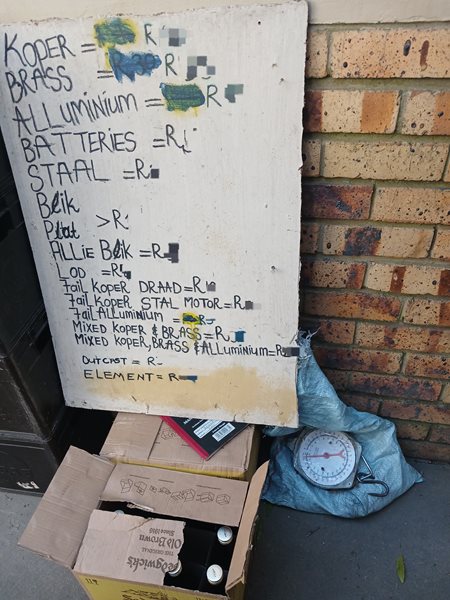 KOPER = R
BRASS = R
ALLUMINIUM = R
BATTERIES = R
STAAL = R
Blik
Plat > R
ALLIE Blik = R
LOD = R
Fail KOPER DRAAD = R
Fail KOPER STAL MOTOR = R
Fail ALLuminium = R
MIXED KOPER & BRASS = R
MIXED KOPER, BRASS & ALLuminium = R
OUTCAST = R
ELEMENT = R
Sedgwick's
Since 1886
Old Brown
THE ORIGINAL